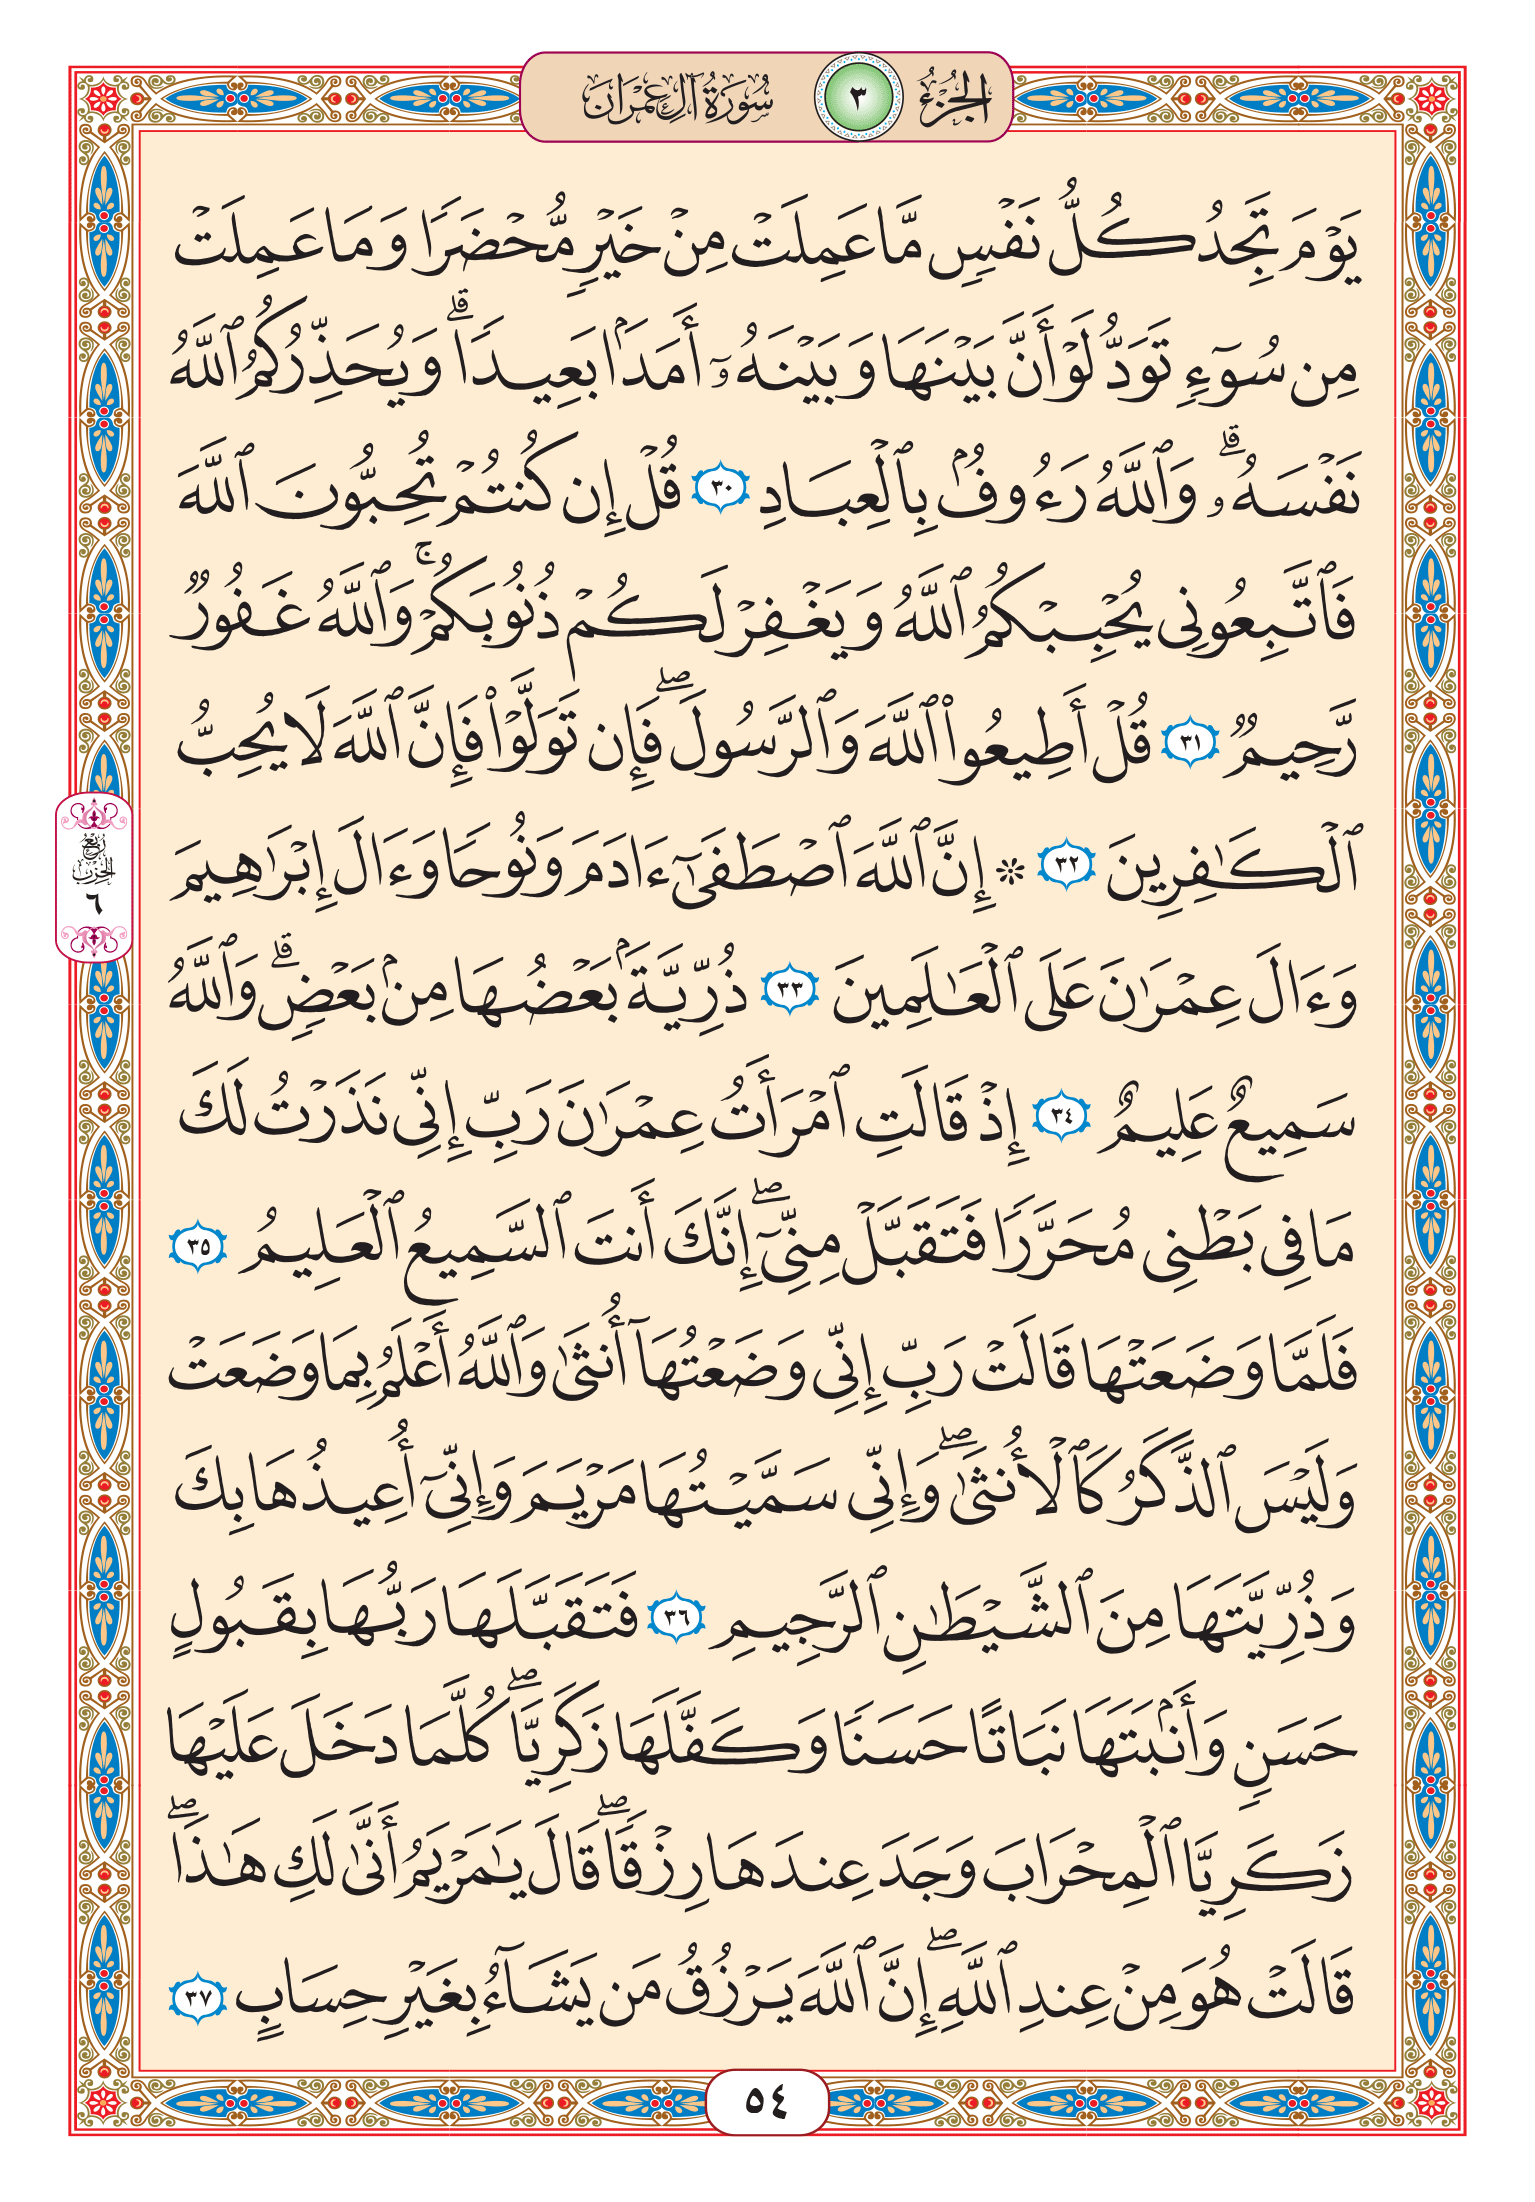 الجزء ٣ سورة آل عمران
يَوْمَ تَجِدُ كُلُّ نَفْسٍ مَّا عَمِلَتْ مِنْ خَيْرٍ مُّحْضَرًا وَمَا عَمِلَتْ
مِن سُوٓءٍ تَوَدُّ لَوْ أَنَّ بَيْنَهَا وَبَيْنَهُۥٓ أَمَدًۢا بَعِيدًا ۗ وَيُحَذِّرُكُمُ ٱللَّهُ
نَفْسَهُۥ ۗ وَٱللَّهُ رَءُوفٌۢ بِٱلْعِبَادِ ٣٠ قُلْ إِن كُنتُمْ تُحِبُّونَ ٱللَّهَ
فَٱتَّبِعُونِى يُحْبِبْكُمُ ٱللَّهُ وَيَغْفِرْ لَكُمْ ذُنُوبَكُمْ ۚ وَٱللَّهُ غَفُورٌ
رَّحِيمٌ ٣١ قُلْ أَطِيعُوا۟ ٱللَّهَ وَٱلرَّسُولَ ۖ فَإِن تَوَلَّوْا۟ فَإِنَّ ٱللَّهَ لَا يُحِبُّ
ٱلْكَـٰفِرِينَ ٣٢ ۞ إِنَّ ٱللَّهَ ٱصْطَفَىٰٓ ءَادَمَ وَنُوحًا وَءَالَ إِبْرَٰهِيمَ
وَءَالَ عِمْرَٰنَ عَلَى ٱلْعَـٰلَمِينَ ٣٣ ذُرِّيَّةًۢ بَعْضُهَا مِنۢ بَعْضٍ ۗ وَٱللَّهُ
سَمِيعٌ عَلِيمٌ ٣٤ إِذْ قَالَتِ ٱمْرَأَتُ عِمْرَٰنَ رَبِّ إِنِّى نَذَرْتُ لَكَ
مَا فِى بَطْنِى مُحَرَّرًا فَتَقَبَّلْ مِنِّىٓ ۖ إِنَّكَ أَنتَ ٱلسَّمِيعُ ٱلْعَلِيمُ ٣٥
فَلَمَّا وَضَعَتْهَا قَالَتْ رَبِّ إِنِّى وَضَعْتُهَآ أُنثَىٰ وَٱللَّهُ أَعْلَمُ بِمَا وَضَعَتْ
وَلَيْسَ ٱلذَّكَرُ كَٱلْأُنثَىٰ ۖ وَإِنِّى سَمَّيْتُهَا مَرْيَمَ وَإِنِّىٓ أُعِيذُهَا بِكَ
وَذُرِّيَّتَهَا مِنَ ٱلشَّيْطَـٰنِ ٱلرَّجِيمِ ٣٦ فَتَقَبَّلَهَا رَبُّهَا بِقَبُولٍ
حَسَنٍ وَأَنۢبَتَهَا نَبَاتًا حَسَنًا وَكَفَّلَهَا زَكَرِيَّا ۖ كُلَّمَا دَخَلَ عَلَيْهَا
زَكَرِيَّا ٱلْمِحْرَابَ وَجَدَ عِندَهَا رِزْقًا ۖ قَالَ يَـٰمَرْيَمُ أَنَّىٰ لَكِ هَـٰذَا ۖ
قَالَتْ هُوَ مِنْ عِندِ ٱللَّهِ ۖ إِنَّ ٱللَّهَ يَرْزُقُ مَن يَشَآءُ بِغَيْرِ حِسَابٍ ٣٧
ربع
الحزب
٦
٥٤